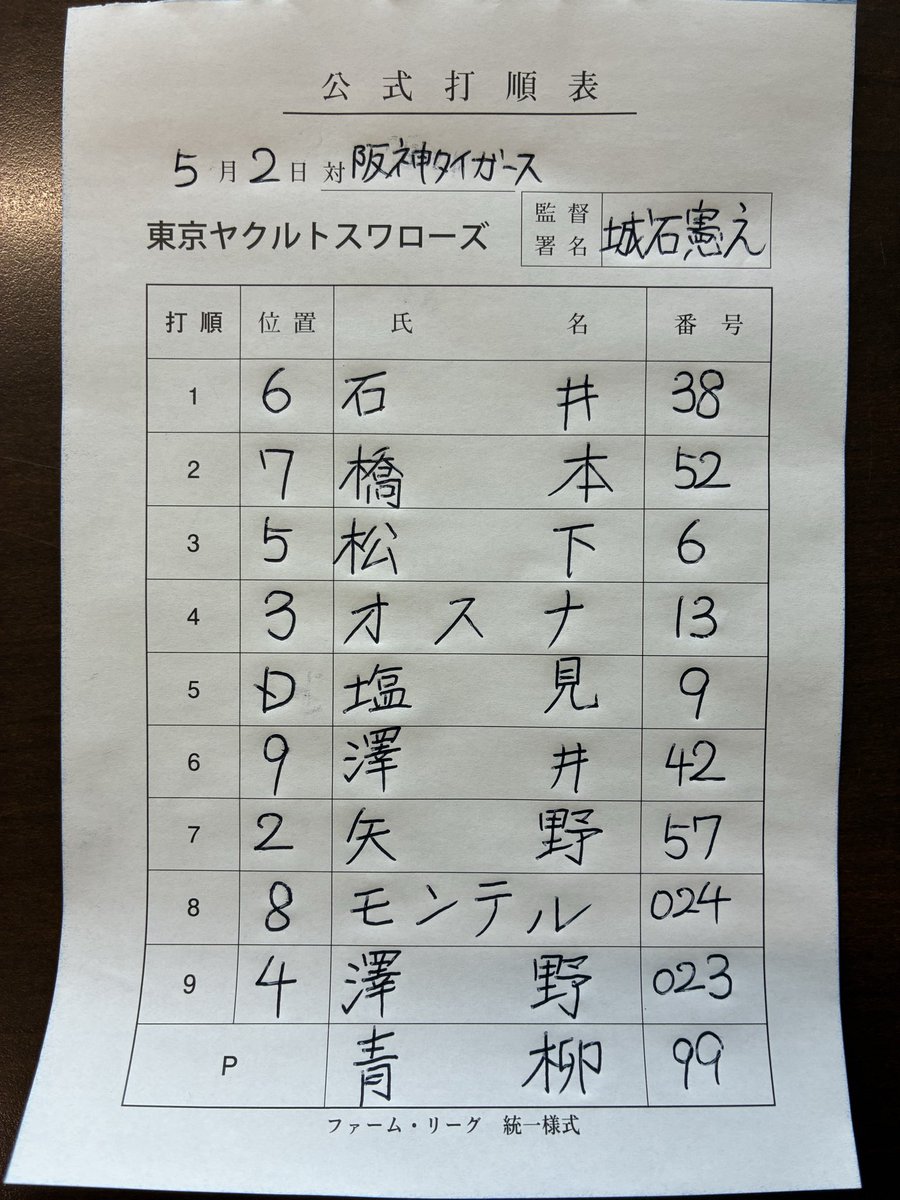 公式打順表
5月2日 対 阪神タイガース
東京ヤクルトスワローズ 監督署名 城石憲之
打順 位置 氏名 番号
1 6 石井 38
2 7 橋本 52
3 5 松下 6
4 3 オスナ 13
5 D 塩見 9
6 9 澤井 42
7 2 矢野 57
8 8 モンテル 024
9 4 澤野 023
P 青柳 99
ファーム・リーグ 統一様式